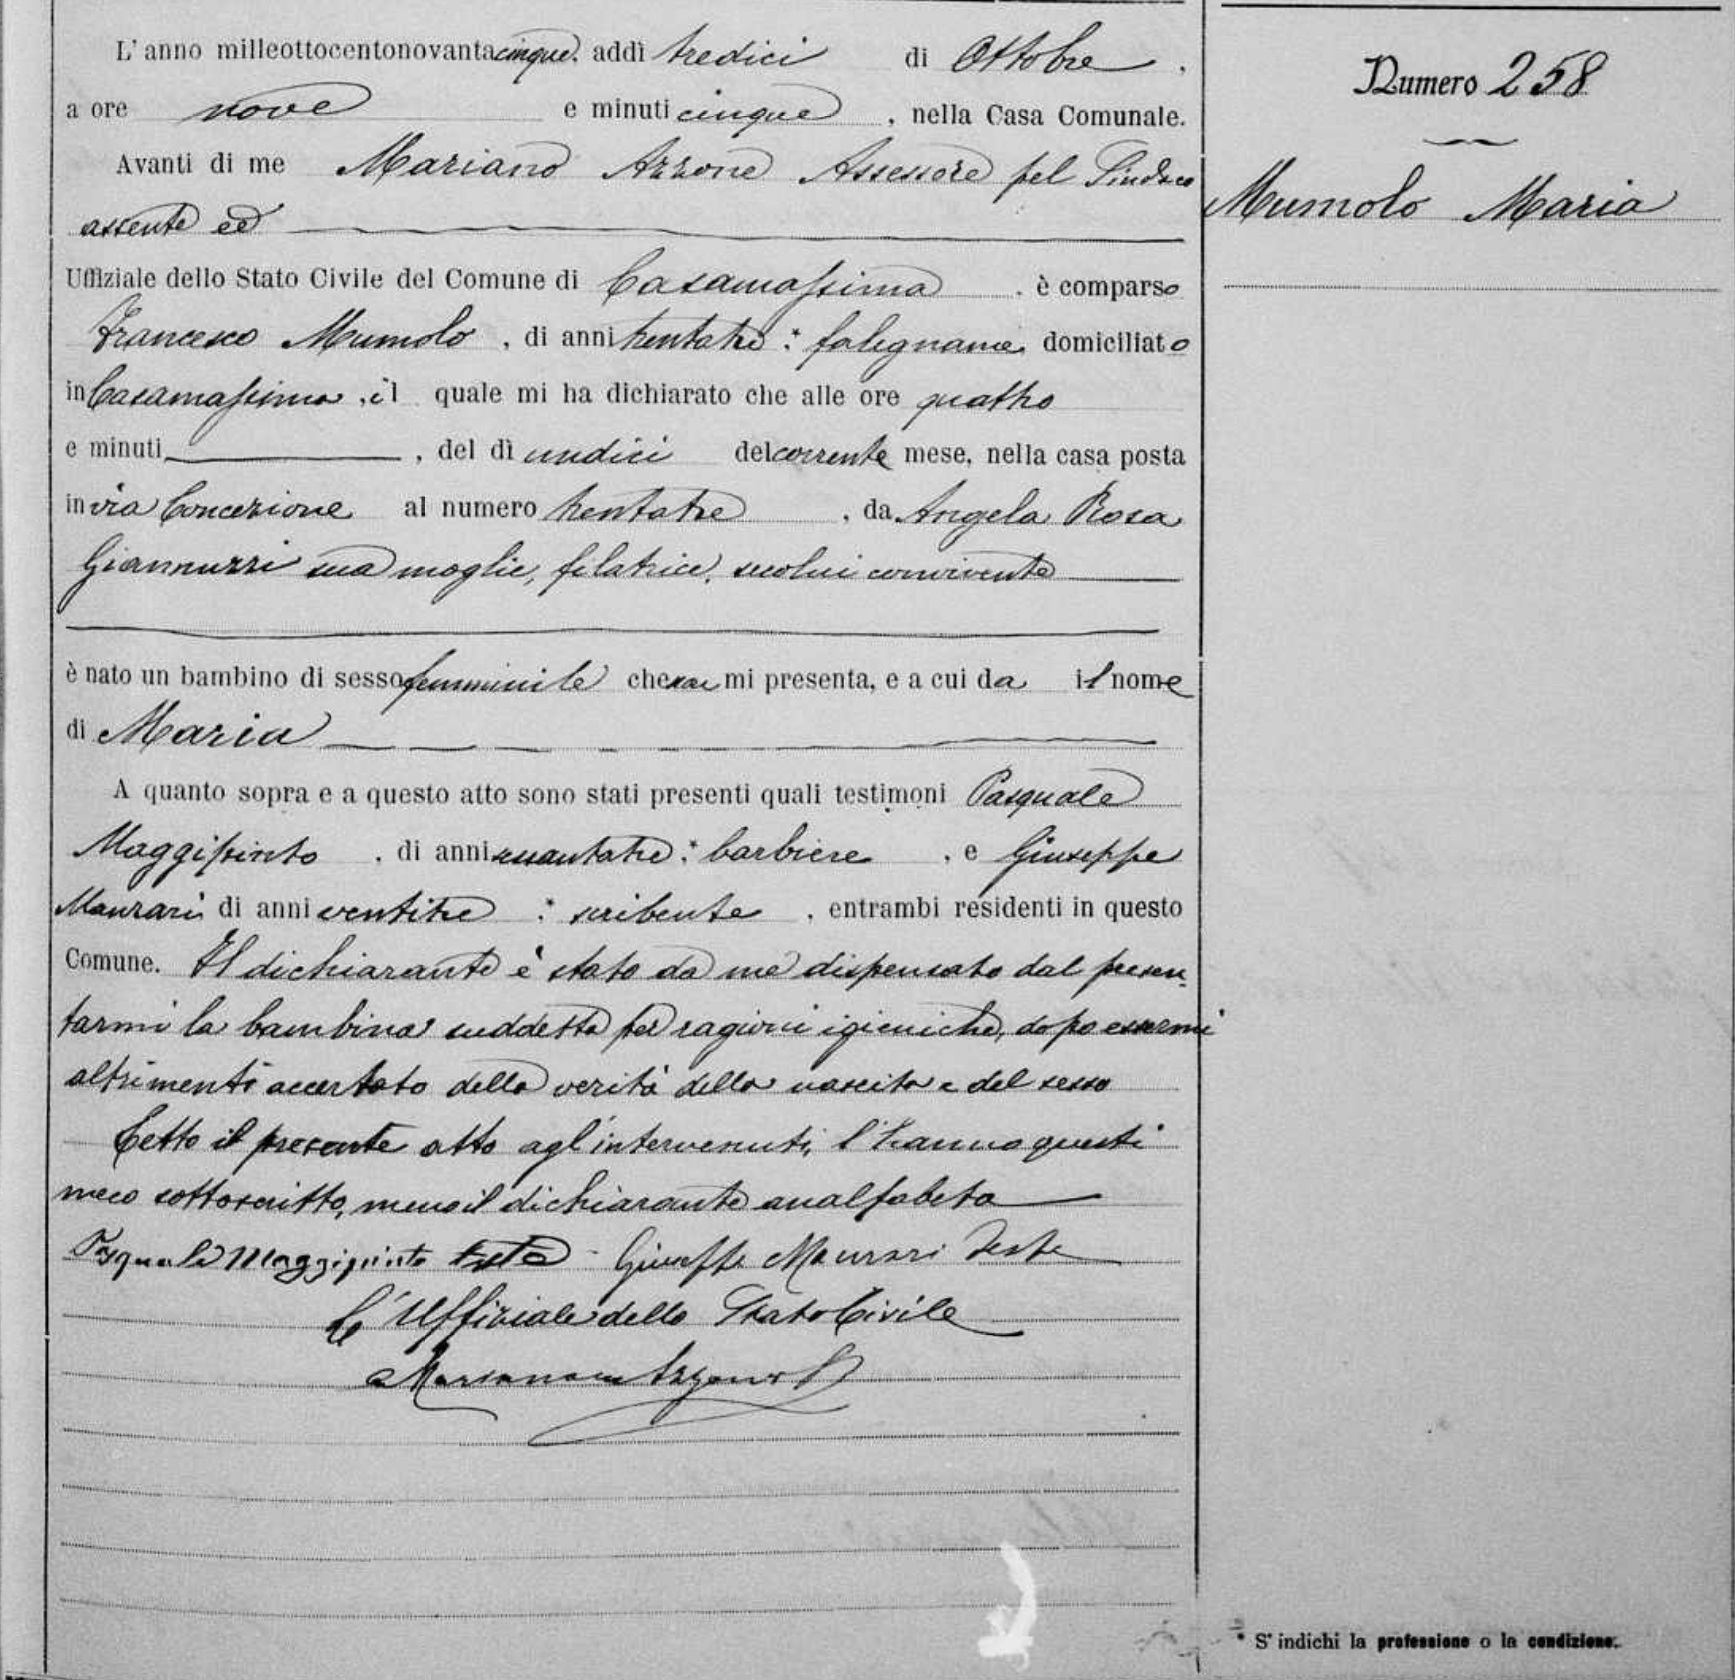 L'anno milleottocentonovantacinque, addì tredici di Ottobre,
a ore nove e minuti cinque, nella Casa Comunale.
Avanti di me Mariano Azzone Assessore pel Sindaco
assente ed
Uffiziale dello Stato Civile del Comune di Casamassima, è comparso
Francesco Mumolo, di anni trentatre * falegname domiciliato
in Casamassima, il quale mi ha dichiarato che alle ore quattro
e minuti, del dì undici del corrente mese, nella casa posta
in via Concezione al numero trentatre, da Angela Rosa
Giannuzzi sua moglie, filatrice, secolui convivente
è nato un bambino di sesso femminile che mi presenta, e a cui da il nome
di Maria
A quanto sopra e a questo atto sono stati presenti quali testimoni Pasquale
Maggipinto, di anni * barbiere, e Giuseppe
Maurari di anni ventitre * scribente, entrambi residenti in questo
Comune. Il dichiarante è stato da me dispensato dal presen-
tarmi la bambina suddetta per ragioni igieniche, dopo essermi
altrimenti accertato della verità della nascita e del sesso
Letto il presente atto agl'intervenuti, l'hanno questi
meco sottoscritto, meno il dichiarante analfabeta
Pasquale Maggipinto teste - Giuseppe Maurari Teste
L'Uffiziale dello Stato Civile
Mariano Azzone
Numero 258
Mumolo Maria
* S'indichi la professione o la condizione.